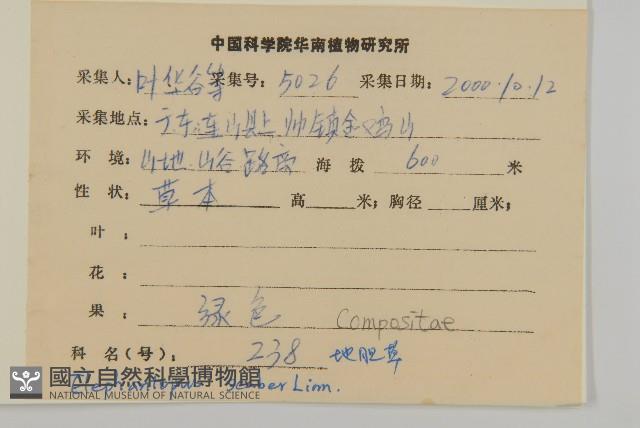 中国科学院华南植物研究所
采集人：叶华谷等 采集号：5026 采集日期：2000.10.12
采集地点：广东连山县上帅镇金鸡山
环 境：山地.山谷路旁 海 拨 600 米
性 状：草本 高 米；胸径 厘米；
叶：
花：
果：绿色 Compositae
科 名(号)：238 地胆草
國立自然科學博物館
NATIONAL MUSEUM OF NATURAL SCIENCE
scaber Linn.